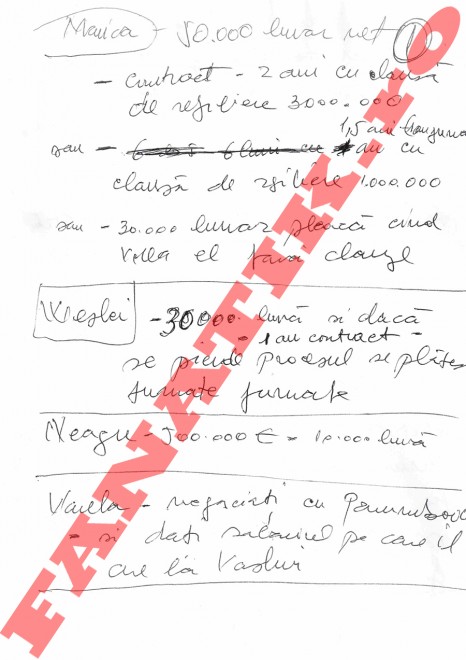 Marica - 50.000 lunar net 1
- contract - 2 ani cu clauză
de reziliere 3000.000
1,5 ani
sau - 6 luni cu 1 an cu
clauză de reziliere 1.000.000
sau - 30.000 lunar pleacă cînd
vrea el fără clauze
Weslei - 30000 lună si dacă
- 1 an contract -
se pierde procesul se plătesc
Neagu - 500.000 € - 10.000 lună
Varela - negociați cu
- si dați salariul pe care îl
are la Vaslui
FANATIK.RO